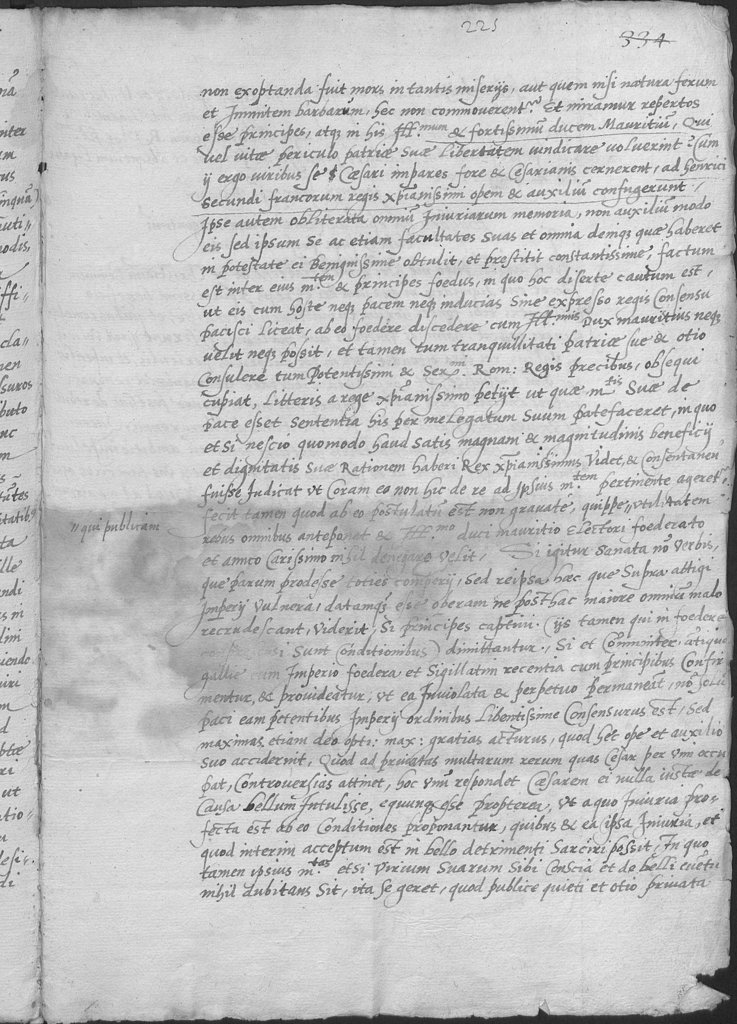 221
334
non exoptanda fuit mors in tantis miserijs, aut quem nisi natura ferum
et Immitem barbarum, hec non commoverent? Et miramur repertos
esse principes, atq; in his Ill.mum & fortissimũ ducem Mauritiũ, Qui
vel vitæ periculo patriæ suæ Libertatem vindicare voluerint? Cum
ij ergo viribus se Cæsari impares fore & Cesarianis cernerent, ad henrici
secundi francorum regis xpianissimi opem & auxiliũ confugerunt,
Ipse autem obliterata omniũ Iniuriarum memoria, non auxiliũ modo
eis sed ipsum se ac etiam facultates suas et omnia demq; quæ haberet
in potestate ei Benignissime obtulit, et prestitit constantissime, factum
est inter eius m.tem & principes foedus, in quo hoc diserte cautum est,
ut eis cum hoste neq; pacem neq; inducias sine expresso regis Consensu
pacisci Liceat, ab eo foedere discedere cum Ill.mus Dux mauritius neq;
velit neq; possit, et tamen tum tranquillitati patriæ sue & otio
Consulere tum potentissimi & Ser.mi Rom: Regis precibus, obsequi
cupiat, Litteris a rege xpianissimo petijt ut quæ m.tis suæ de
pace esset sententia his per me Legatum suum patefaceret, in quo
et si nescio quomodo haud satis magnam & magnitudinis beneficij
et dignitatis suæ Rationem haberi Rex xpianissimus videt, & consentaneũ
fuisse Iudicat ut Coram eo non hic de re ad Ipsius m.tem pertinente ageret.
fecit tamen quod ab eo postulatũ est non gravate, quippe utilitatem
"qui publicam
rebus omnibus anteponat & Ill.mo duci mauritio Electori foederato
et amico Carissimo nihil denegare velit, Si igitur sanata nõ verbis,
que parum prodesse toties comperij, sed reipsa hæc que supra attigi
Imperij vulnera, datamq; esse operam ne posthac maiore omniũ malo
recrudescant, viderit, Si principes captivi ijs tamen qui in foedere
sunt Conditionibus dimittantur, Si et
gallie cum Imperio foedera et sigillatim recentia cum principibus Confir
mentur, & provideatur, ut ea Inviolata & perpetuo permaneãt, nõ solũ
paci eam petentibus Imperij ordinibus Libentissime Consensurus est, sed
maximas etiam deo opti: max: gratias acturus, quod hec ope et auxilio
suo acciderint, Quod ad privatas multarum rerum quas Cesar per vim occu
pat, Controversias attinet, hoc vnũ respondet Cæsarem ei nulla iusta de
Causa bellum Intulisse, equumq; esse propterea, ut a quo Iniuria pro-
fecta est ab eo Conditiones proponantur, quibus & ea ipsa Iniuria, et
quod interim acceptum est in bello detrimenti sarciri possit, In quo
tamen ipsius m.tas etsi virium suarum sibi Conscia et de belli evetu
nihil dubitans sit, ita se geret, quod publice quieti et otio privata